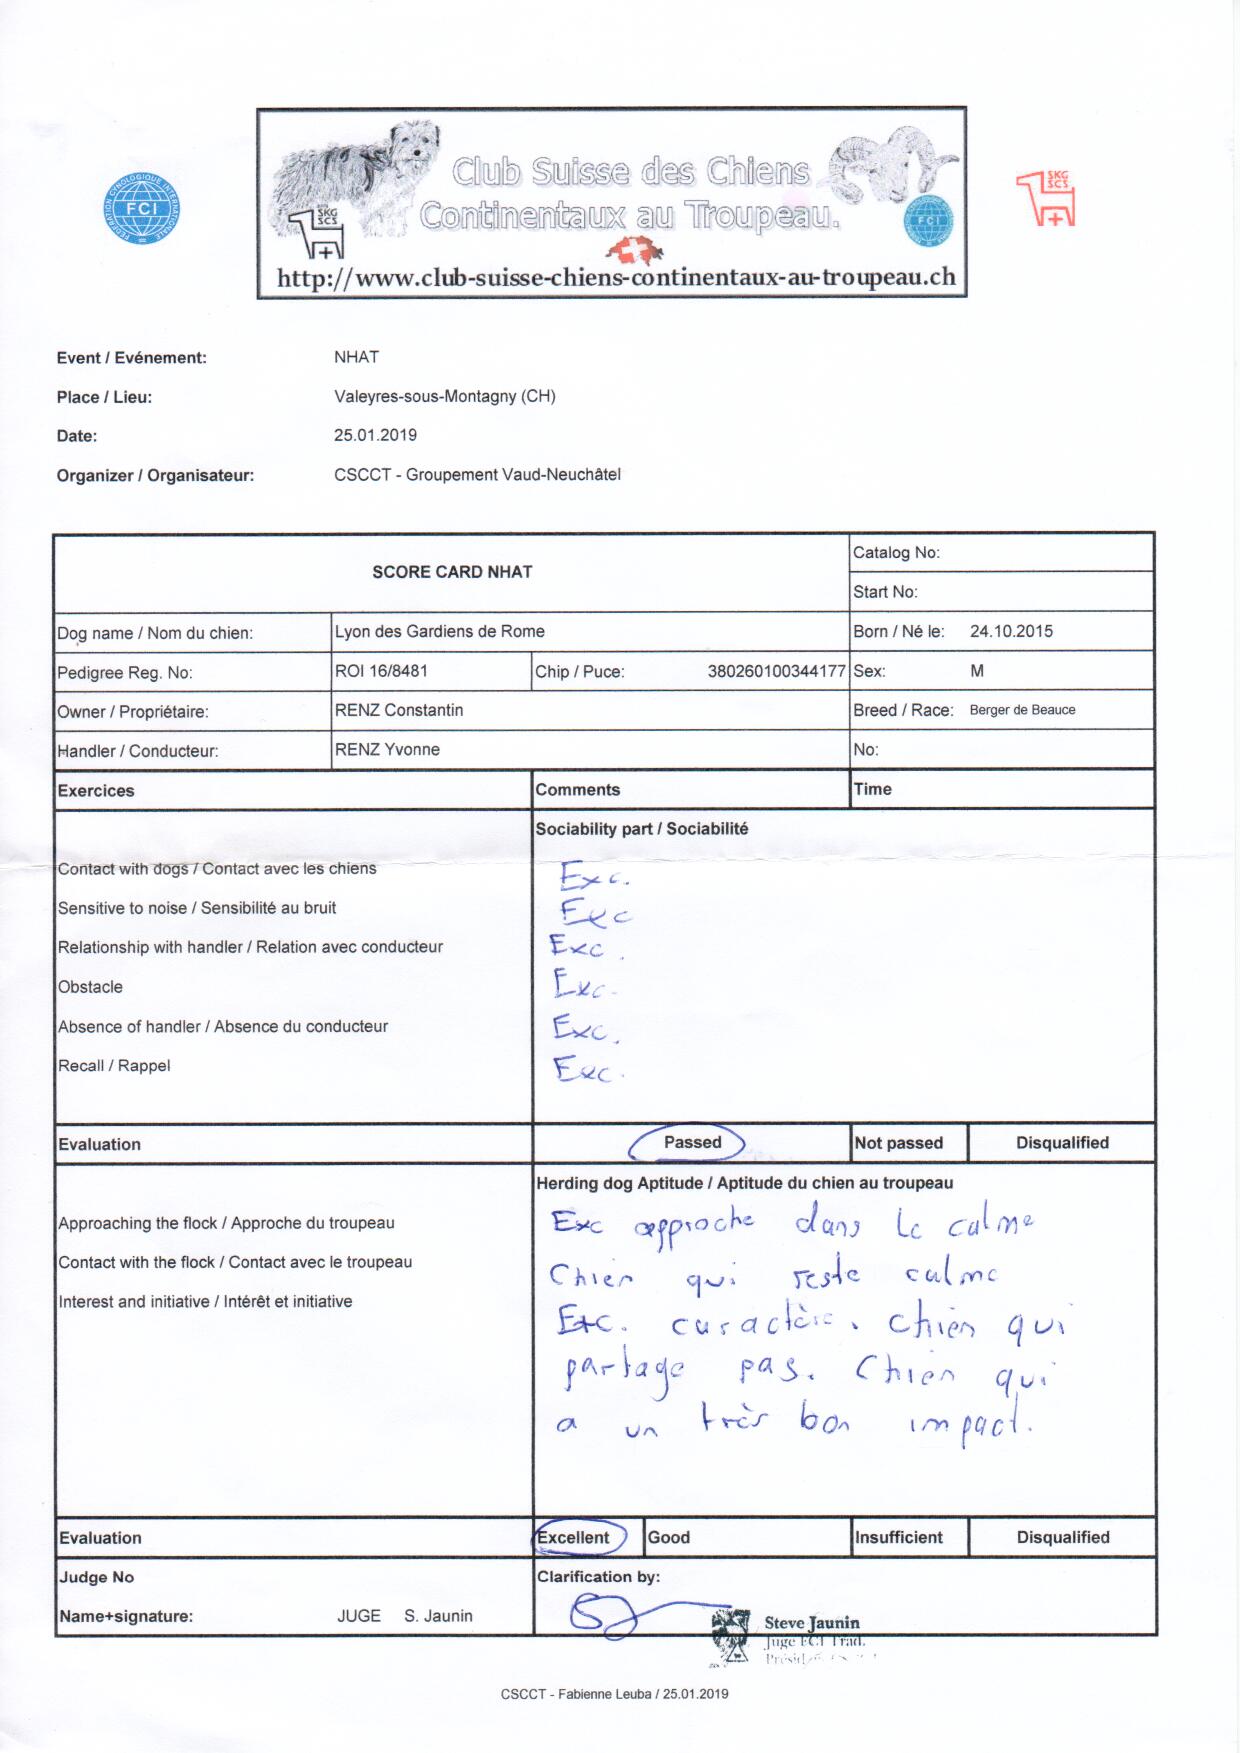 FEDERATION CYNOLOGIQUE INTERNATIONALE
FCI
SKG
SCS
Club Suisse des Chiens
Continentaux au Troupeau.
SKG
SCS
FCI
http://www.club-suisse-chiens-continentaux-au-troupeau.ch
Event / Evénement: NHAT
Place / Lieu: Valeyres-sous-Montagny (CH)
Date: 25.01.2019
Organizer / Organisateur: CSCCT - Groupement Vaud-Neuchâtel
SCORE CARD NHAT
Catalog No:
Start No:
Dog name / Nom du chien: Lyon des Gardiens de Rome Born / Né le: 24.10.2015
Pedigree Reg. No: ROI 16/8481 Chip / Puce: 380260100344177 Sex: M
Owner / Propriétaire: RENZ Constantin Breed / Race: Berger de Beauce
Handler / Conducteur: RENZ Yvonne No:
Exercices Comments Time
Sociability part / Sociabilité
Contact with dogs / Contact avec les chiens Exc.
Sensitive to noise / Sensibilité au bruit Exc
Relationship with handler / Relation avec conducteur Exc.
Obstacle Exc.
Absence of handler / Absence du conducteur Exc.
Recall / Rappel Exc.
Evaluation Passed Not passed Disqualified
Herding dog Aptitude / Aptitude du chien au troupeau
Approaching the flock / Approche du troupeau Exc approche dans le calme
Contact with the flock / Contact avec le troupeau Chien qui reste calme
Interest and initiative / Intérêt et initiative Exc. caractère. Chien qui
partage pas. Chien qui
a un très bon impact.
Evaluation Excellent Good Insufficient Disqualified
Judge No Clarification by:
Name+signature: JUGE S. Jaunin
Steve Jaunin
Juge FCI Trad.
CSCCT - Fabienne Leuba / 25.01.2019